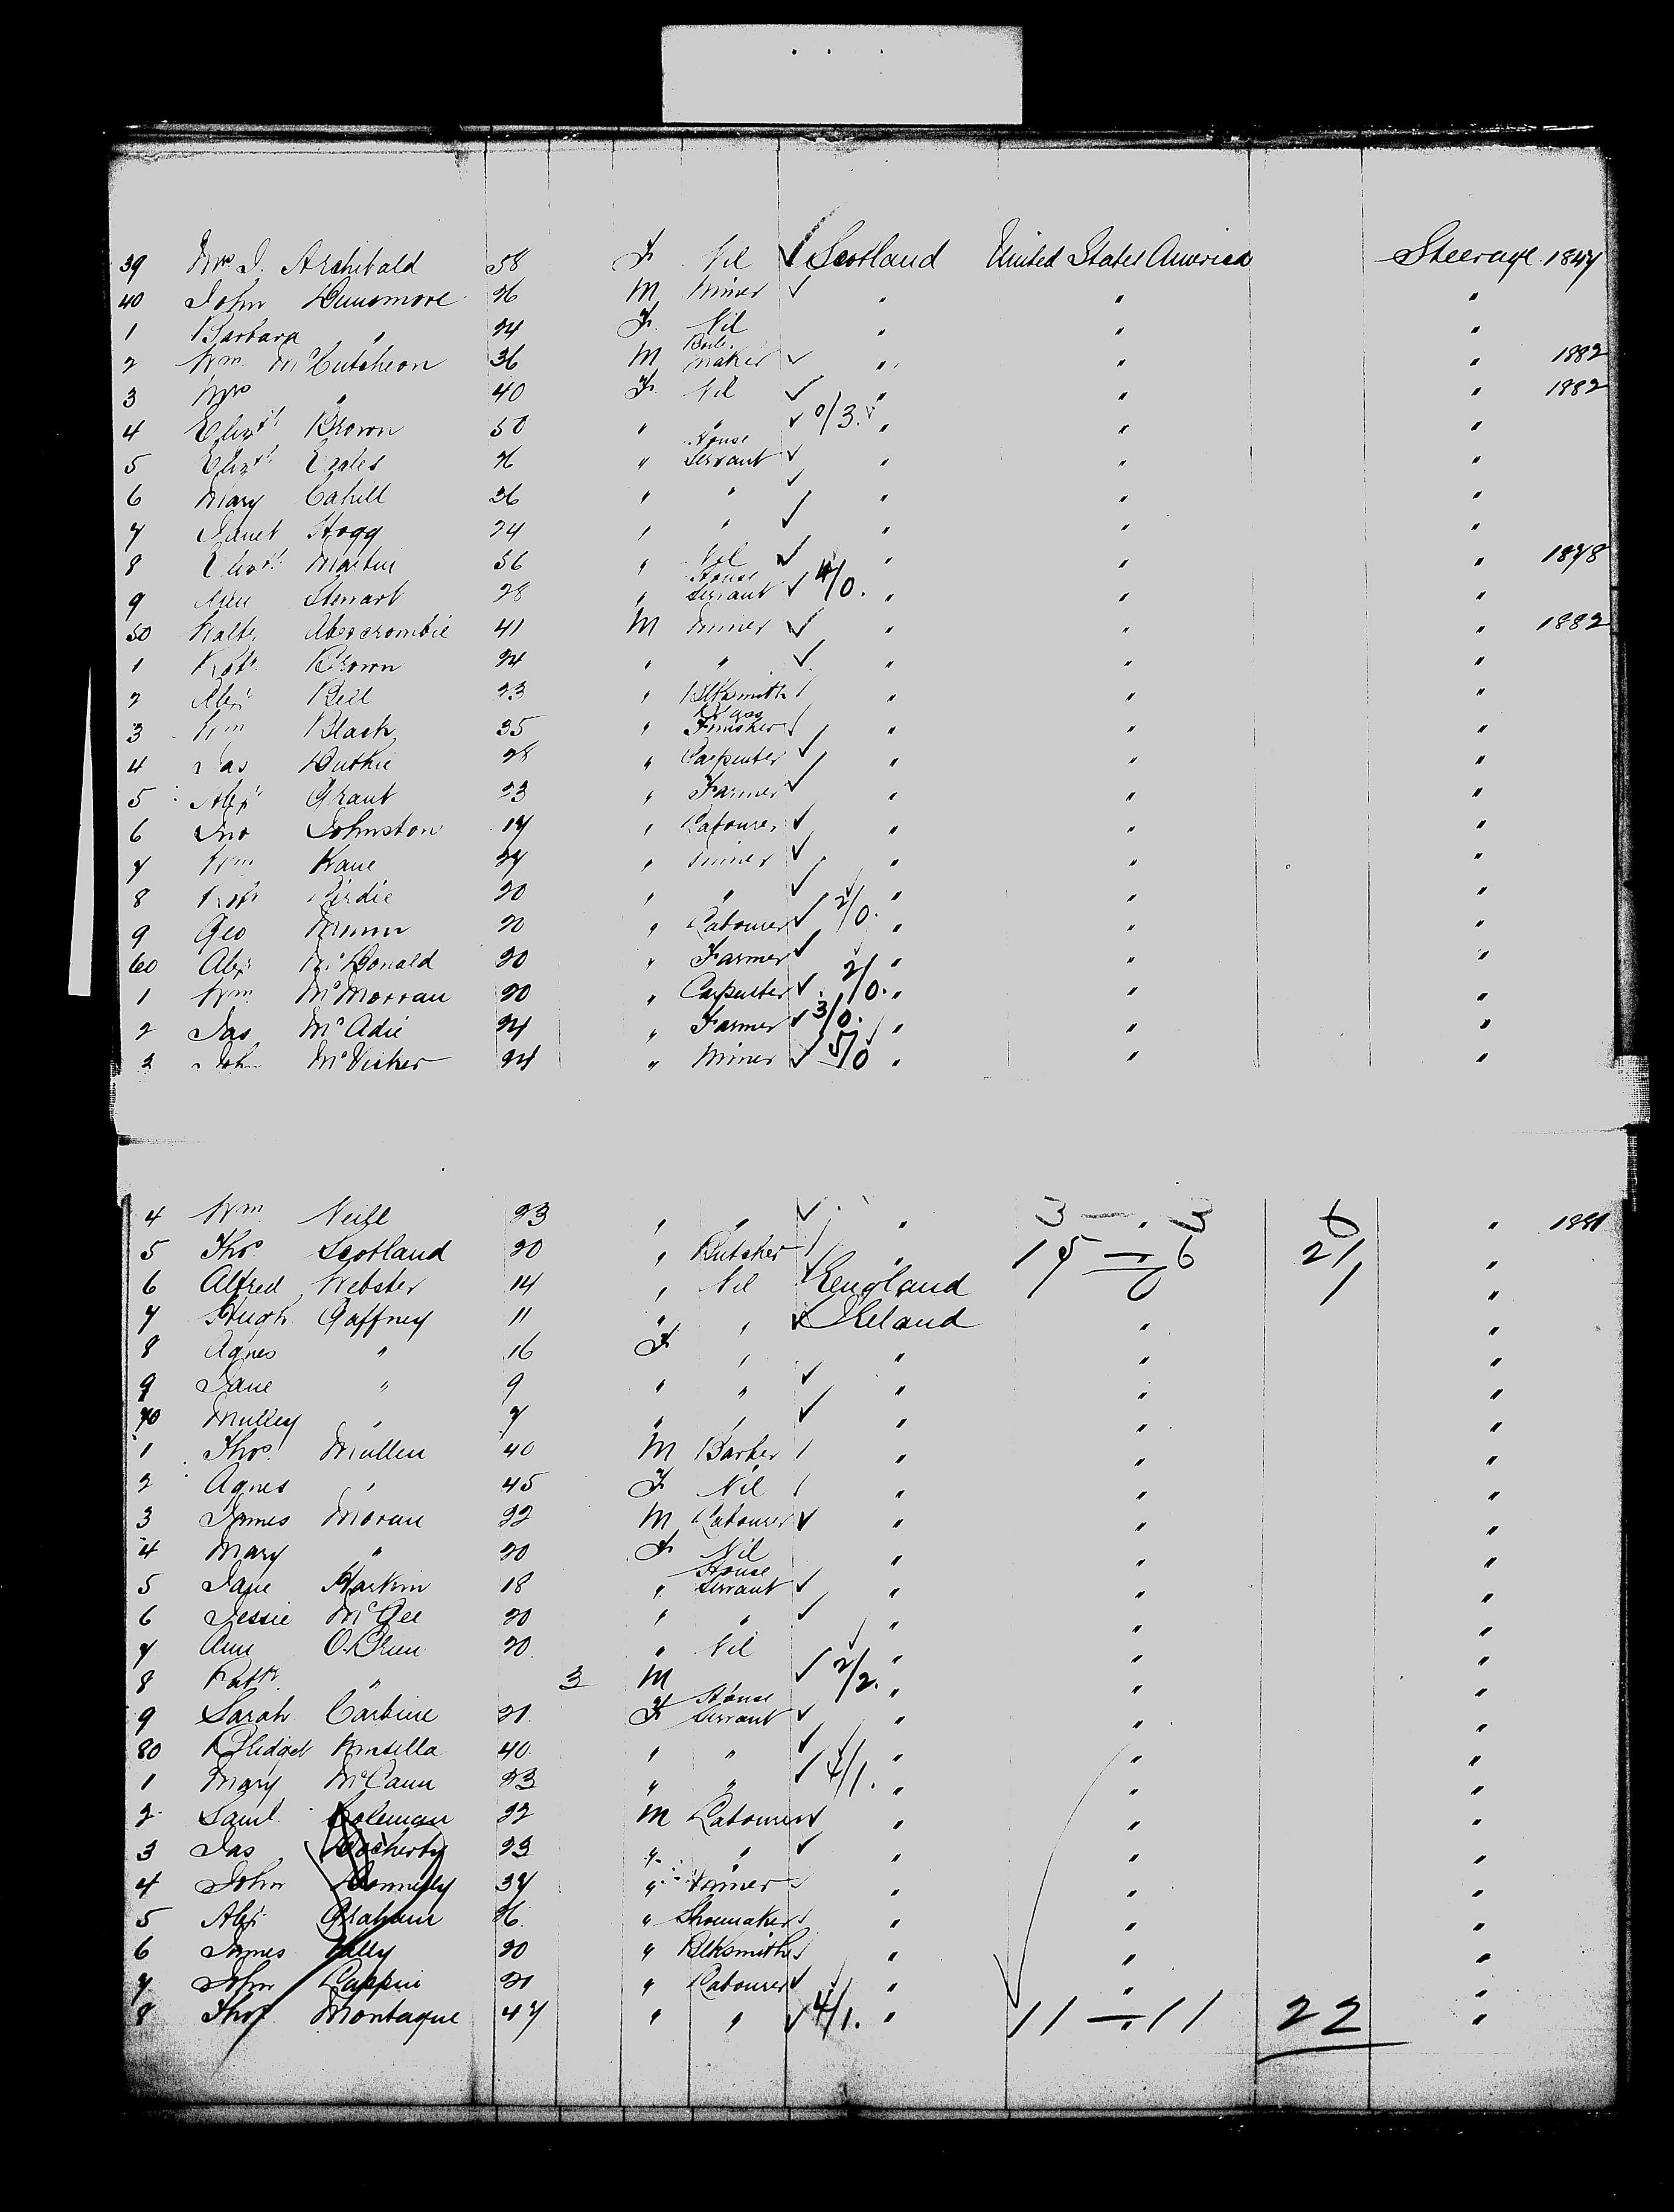 39 Mrs J. Archibald 58 F Nil ✓ Scotland United States America Steerage 1847
40 John Dunsmore 26 M Miner ✓ " " "
1 Barbara " 24 F Nil " " "
2 Wm McCutcheon 36 M Boiler maker ✓ " " " 1882
3 Mrs " 40 F Nil ✓ " " " 1882
4 Elizth Brown 50 " " ✓ 0/3. " " "
5 Elizth 26 " House Servant ✓ " " "
6 Mary Cahill 36 " " ✓ " " "
7 Janet Hogg 24 " " ✓ " " "
8 Elizth Martin 56 " Nil ✓ " " " 1878
9 Stewart 28 " House Servant ✓ 4/0. " " "
50 Walter Abercrombie 41 M Miner ✓ " " " 1882
1 Robt Brown 24 " " ✓ " " "
2 Alexr Bell 23 " Blksmith " " "
3 Wm Black 35 " Brass Finisher " " "
4 Jas Duthie 28 " Carpenter ✓ " " "
5 Alexr Grant 23 " Farmer ✓ " " "
6 Jno Johnston 17 " Labourer ✓ " " "
7 Wm Kane 27 " Miner ✓ " " "
8 Robt 20 " " ✓ " " "
9 Geo Munn 20 " Labourer ✓ 2/0. " " "
60 Alexr McDonald 20 " Farmer ✓ " " "
1 Wm McMorran 20 " Carpenter ✓ 2/0. " " "
2 Jas McAdie 24 " Farmer ✓ 3/0. " " "
3 John McVicker 24 " Miner ✓ 5/0 " " "
4 Wm Neill 23 " " ✓ " 3 — " 3 6 " 1881
5 Thos Scotland 20 " Butcher " 15 — " 6 21 "
6 Alfred Webster 14 " Nil England 1 "
7 Hugh Gaffney 11 " " ✓ Ireland " "
8 Agnes " 16 F " " " "
9 Jane " 9 " " ✓ " " "
70 " 7 " " ✓ " " "
1 Thos Mullen 40 M " " "
2 Agnes " 45 F Nil " " "
3 James Moran 22 M Labourer ✓ " " "
4 Mary " 20 F Nil " " "
5 Jane Harkin 18 " House Servant ✓ " " "
6 Jessie McGee 20 " " ✓ " " "
7 Ann O'Brien 20 " Nil " " "
8 Patk " 3 M ✓ 2/2. " " "
9 Sarah Carbine 21 F House Servant ✓ " " "
80 Bridget Kinsella 40 " " ✓ " " "
1 Mary McCann 23 " " ✓ 4/1. " " "
2 Saml Coleman 22 M Labourer ✓ " " "
3 Jas Docherty 23 " " ✓ " " "
4 John Donnelly 37 " Miner " " "
5 Alexr Graham 26 " Shoemaker " " "
6 James 20 " Blksmith " " "
7 John Lappin 21 " Labourer ✓ " " "
8 Thos Montague 47 " " ✓ 4/1. " 11 — " 11 22 "